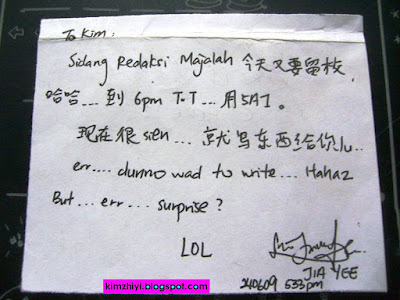 To Kim:
Sidang Redaksi Majalah 今天又要留校,
哈哈... 到 6pm T.T... 用 5A1。
现在很 sien... 就写东西给你...
err.... dunno wad to write... Hahaz
But... err... surprise?
LOL
JIA YEE
240609 533pm
kimzhiyi.blogspot.com